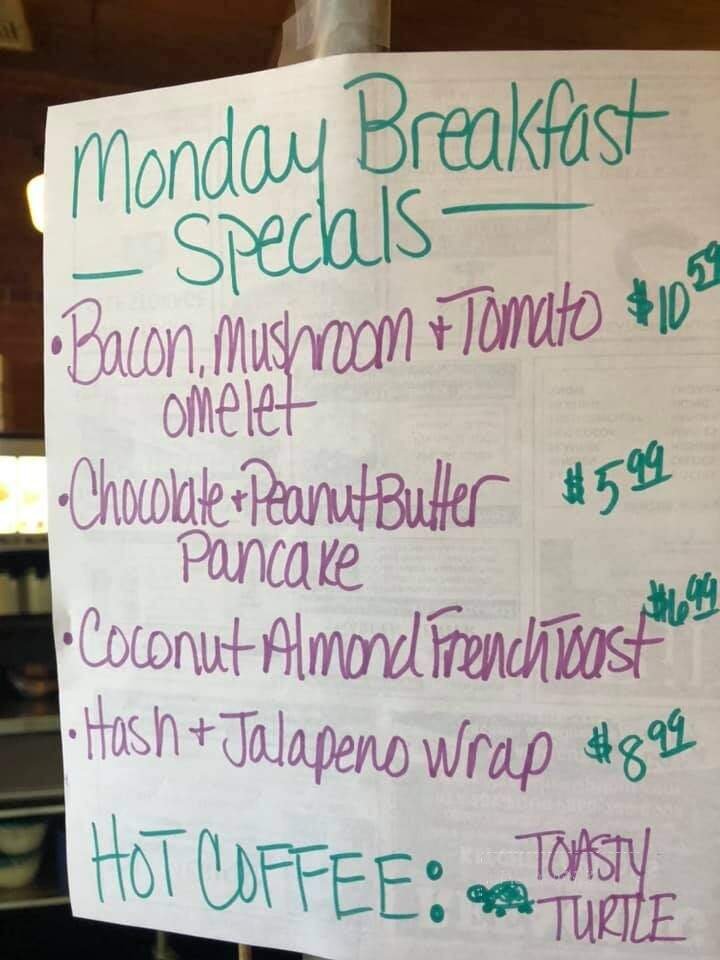 Monday Breakfast
— Specials —
• Bacon, Mushroom + Tomato $10.59
omelet
• Chocolate + Peanut Butter $5.99
Pancake
• Coconut Almond French Toast $6.99
• Hash + Jalapeno Wrap $8.99
HOT COFFEE: TOASTY
TURTLE